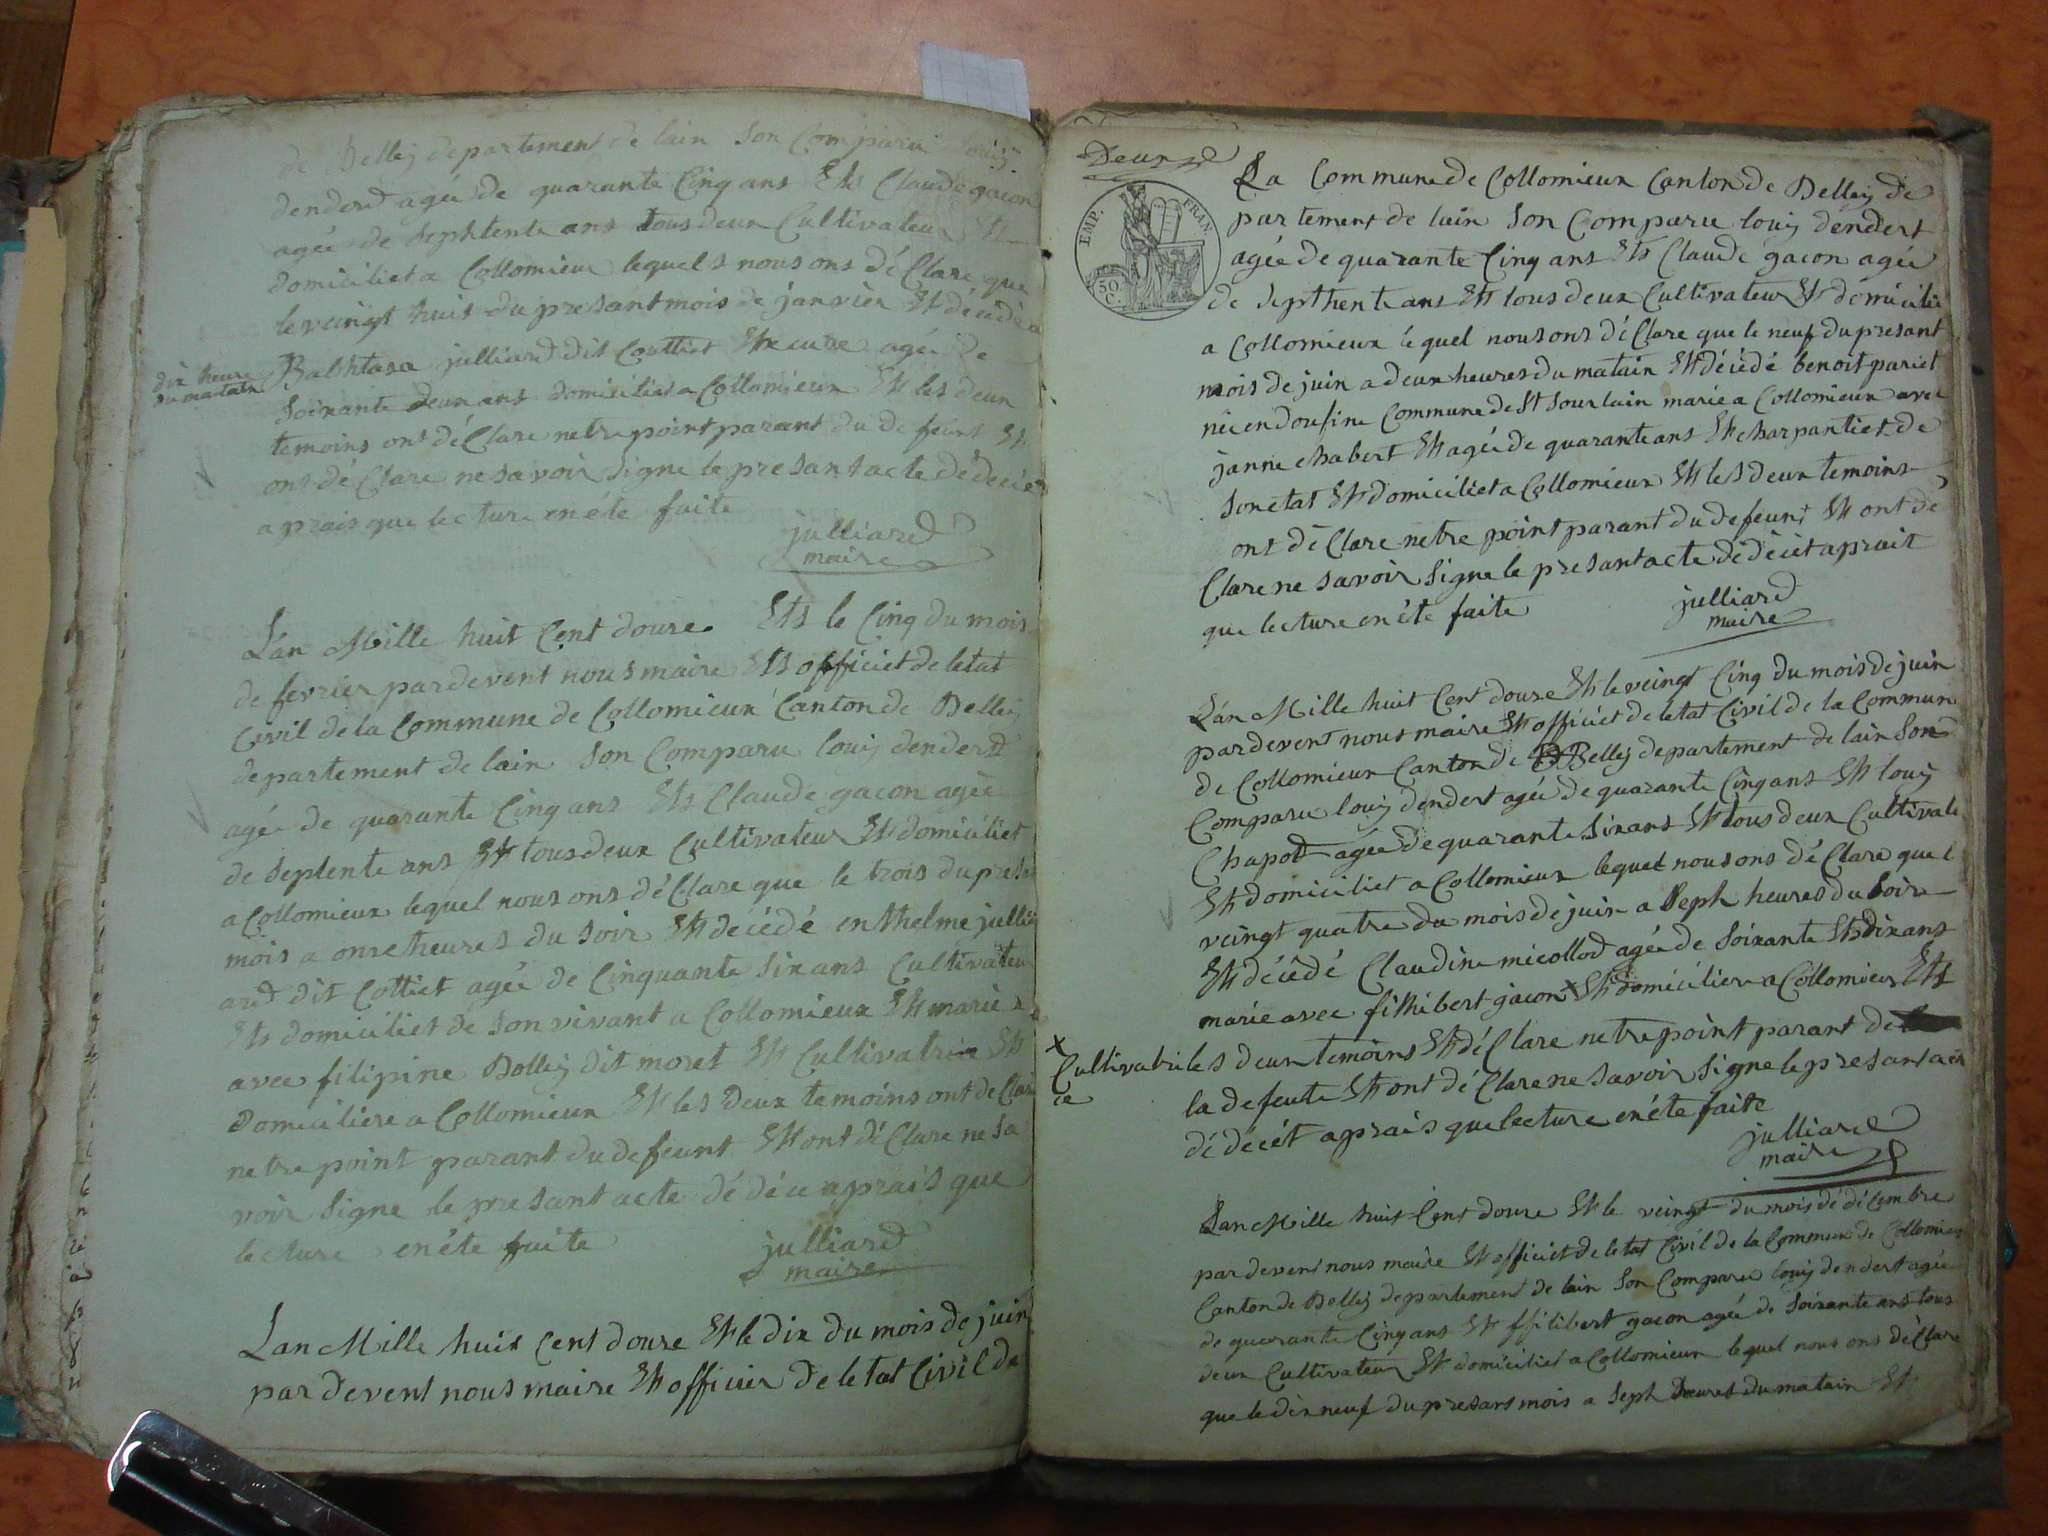 de Belley departement de lain son Comparu louij
denderd agée de quarante Cinq ans Et Claude gacon
agée de Sephtente ans tous deux Cultivateur Et
domiciliet a Collomieux lequels nous ons déClare que
le veingt huit du presant mois de janvier Et décédé a
dix heure
du matain
Balthtasa julliard dit Cottiet agée de
Soixante deux ans domiciliet a Collomieux Et les deux
temoins ont déClare netre point parant du defeunt Et
ont déClare ne savoir Signe le presant acte dédecés
aprais que lecture en éte faite
julliard
maire
Lan Mille huit Cent douze Et le Cinq du mois
de fevrier par devent nous maire Et officiet de letat
Civil de la Commune de Collomieux Canton de Belley
departement de lain Son Comparu louij denderd
agée de quarante Cinq ans Et Claude gacon agée
de Septente ans Et tous deux Cultivateur Et domiciliet
a Collomieux lequel nous ons déClare que le trois du presa
mois a onze heures du Soir Et décédé enthelme julli
ard dit Cottiet agée de Cinquante Six ans Cultivateur
Et domiciliet de Son vivant a Collomieux Et marie
avec filipine Bolley dit moret Et Cultivatrice Et
domiciliere a Collomieux Et les deux temoins ont de Clare
netre point parant du defeunt Et ont déClare ne sa
voir Signe le presant acte dédéce aprais que
lecture en éte faite
julliard
maire
Lan Mille huit Cent douze Et le dix du mois de juin
par devent nous maire Et officier de letat Civil de
Deux
EMP. FRAN.
50 C.
La Commune de Collomieux Canton de Belley de
partement de lain Son Comparu louij dendert
agée de quarante Cinq ans Et Claude gacon agée
de Septhente ans Et tous deux Cultivateur Et domicilie
a Collomieux lequel nous ons déClare que le neuf du presant
mois de juin a deux heures du matain Et décédé benoit pariet
née en doufine Commune de St Sourlain marie a Collomieux avec
janne chabert Et agée de quarante ans Et charpantiet de
Son etat Et domiciliet a Collomieux Et les deux temoins
ont déClare netre point parant du defeunt Et ont dé
Clare ne savoir Signe le presant acte dédécet aprait
que lecture en éte faite
julliard
maire
Lan Mille huit Cent douze Et le veingt Cinq du mois de juin
par devent nous maire Et officiet de letat Civil de la Commun
de Collomieux Canton de Belley departement de lain Son
Comparu louij dendert agée de quarante Cinq ans Et louij
Chapot agée de quarante Six ans Et tous deux Cultivate
Et domiciliet a Collomieux lequel nous ons déClare que l
veingt quatre du mois de juin a Seph heures du Soir
Et décédé Claudine micollod agée de Soixante Et dix ans
marie avec filhibert gacon x Et domiciliere a Collomieux Et
x
Cultivatri
ce
les deux temoins Et déClare netre point parant de
la defeute Et ont déClare ne savoir Signe le presant acte
dédécét aprais que lecture en éte faite
julliard
maire
Lan Mille huit Cent douze Et le veingt du mois dé décembre
par devent nous maire Et officiet de letat Civil de la Commun de Collomieux
Canton de Belley departement de lain Son Comparu louij dendert agée
de quarante Cinq ans Et ffilibert gacon agée de Soixante ans tous
deux Cultivateur Et domiciliet a Collomieux lequel nous ons déClare
que le dix neuf du presant mois a Seph heures du matain Et